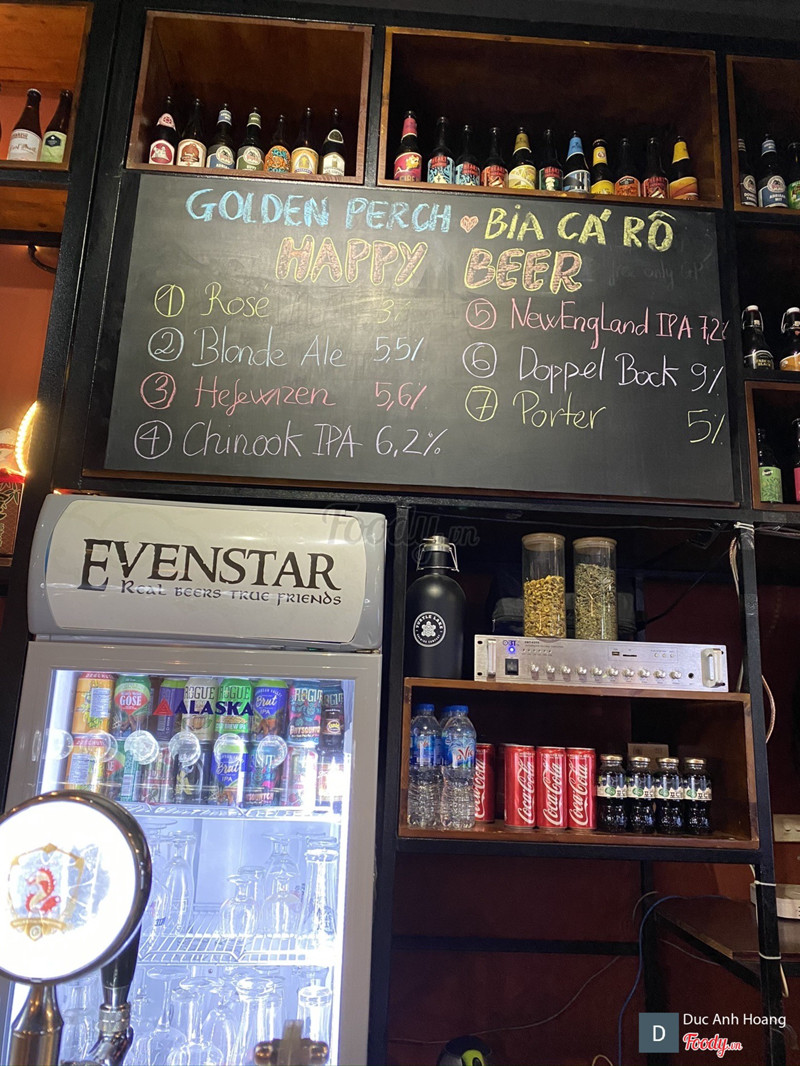 GOLDEN PERCH BIA CÁ RÔ
HAPPY BEER
1 Rose 3%
2 Blonde Ale 5,5%
3 Hefewizen 5,6%
4 Chinook IPA 6,2%
5 NewEngland IPA 7,2%
6 Doppel Bock 9%
7 Porter 5%
Foody.vn
EVENSTAR
REAL BEERS TRUE FRIENDS
TURTLE LAKE
GOSE
ROGUE
ALASKA
Brut
IPA
ROGUE
Brut
Coca-Cola
Coca-Cola
Coca-Cola
Coca-Cola
2
D
Duc Anh Hoang
Foody.vn